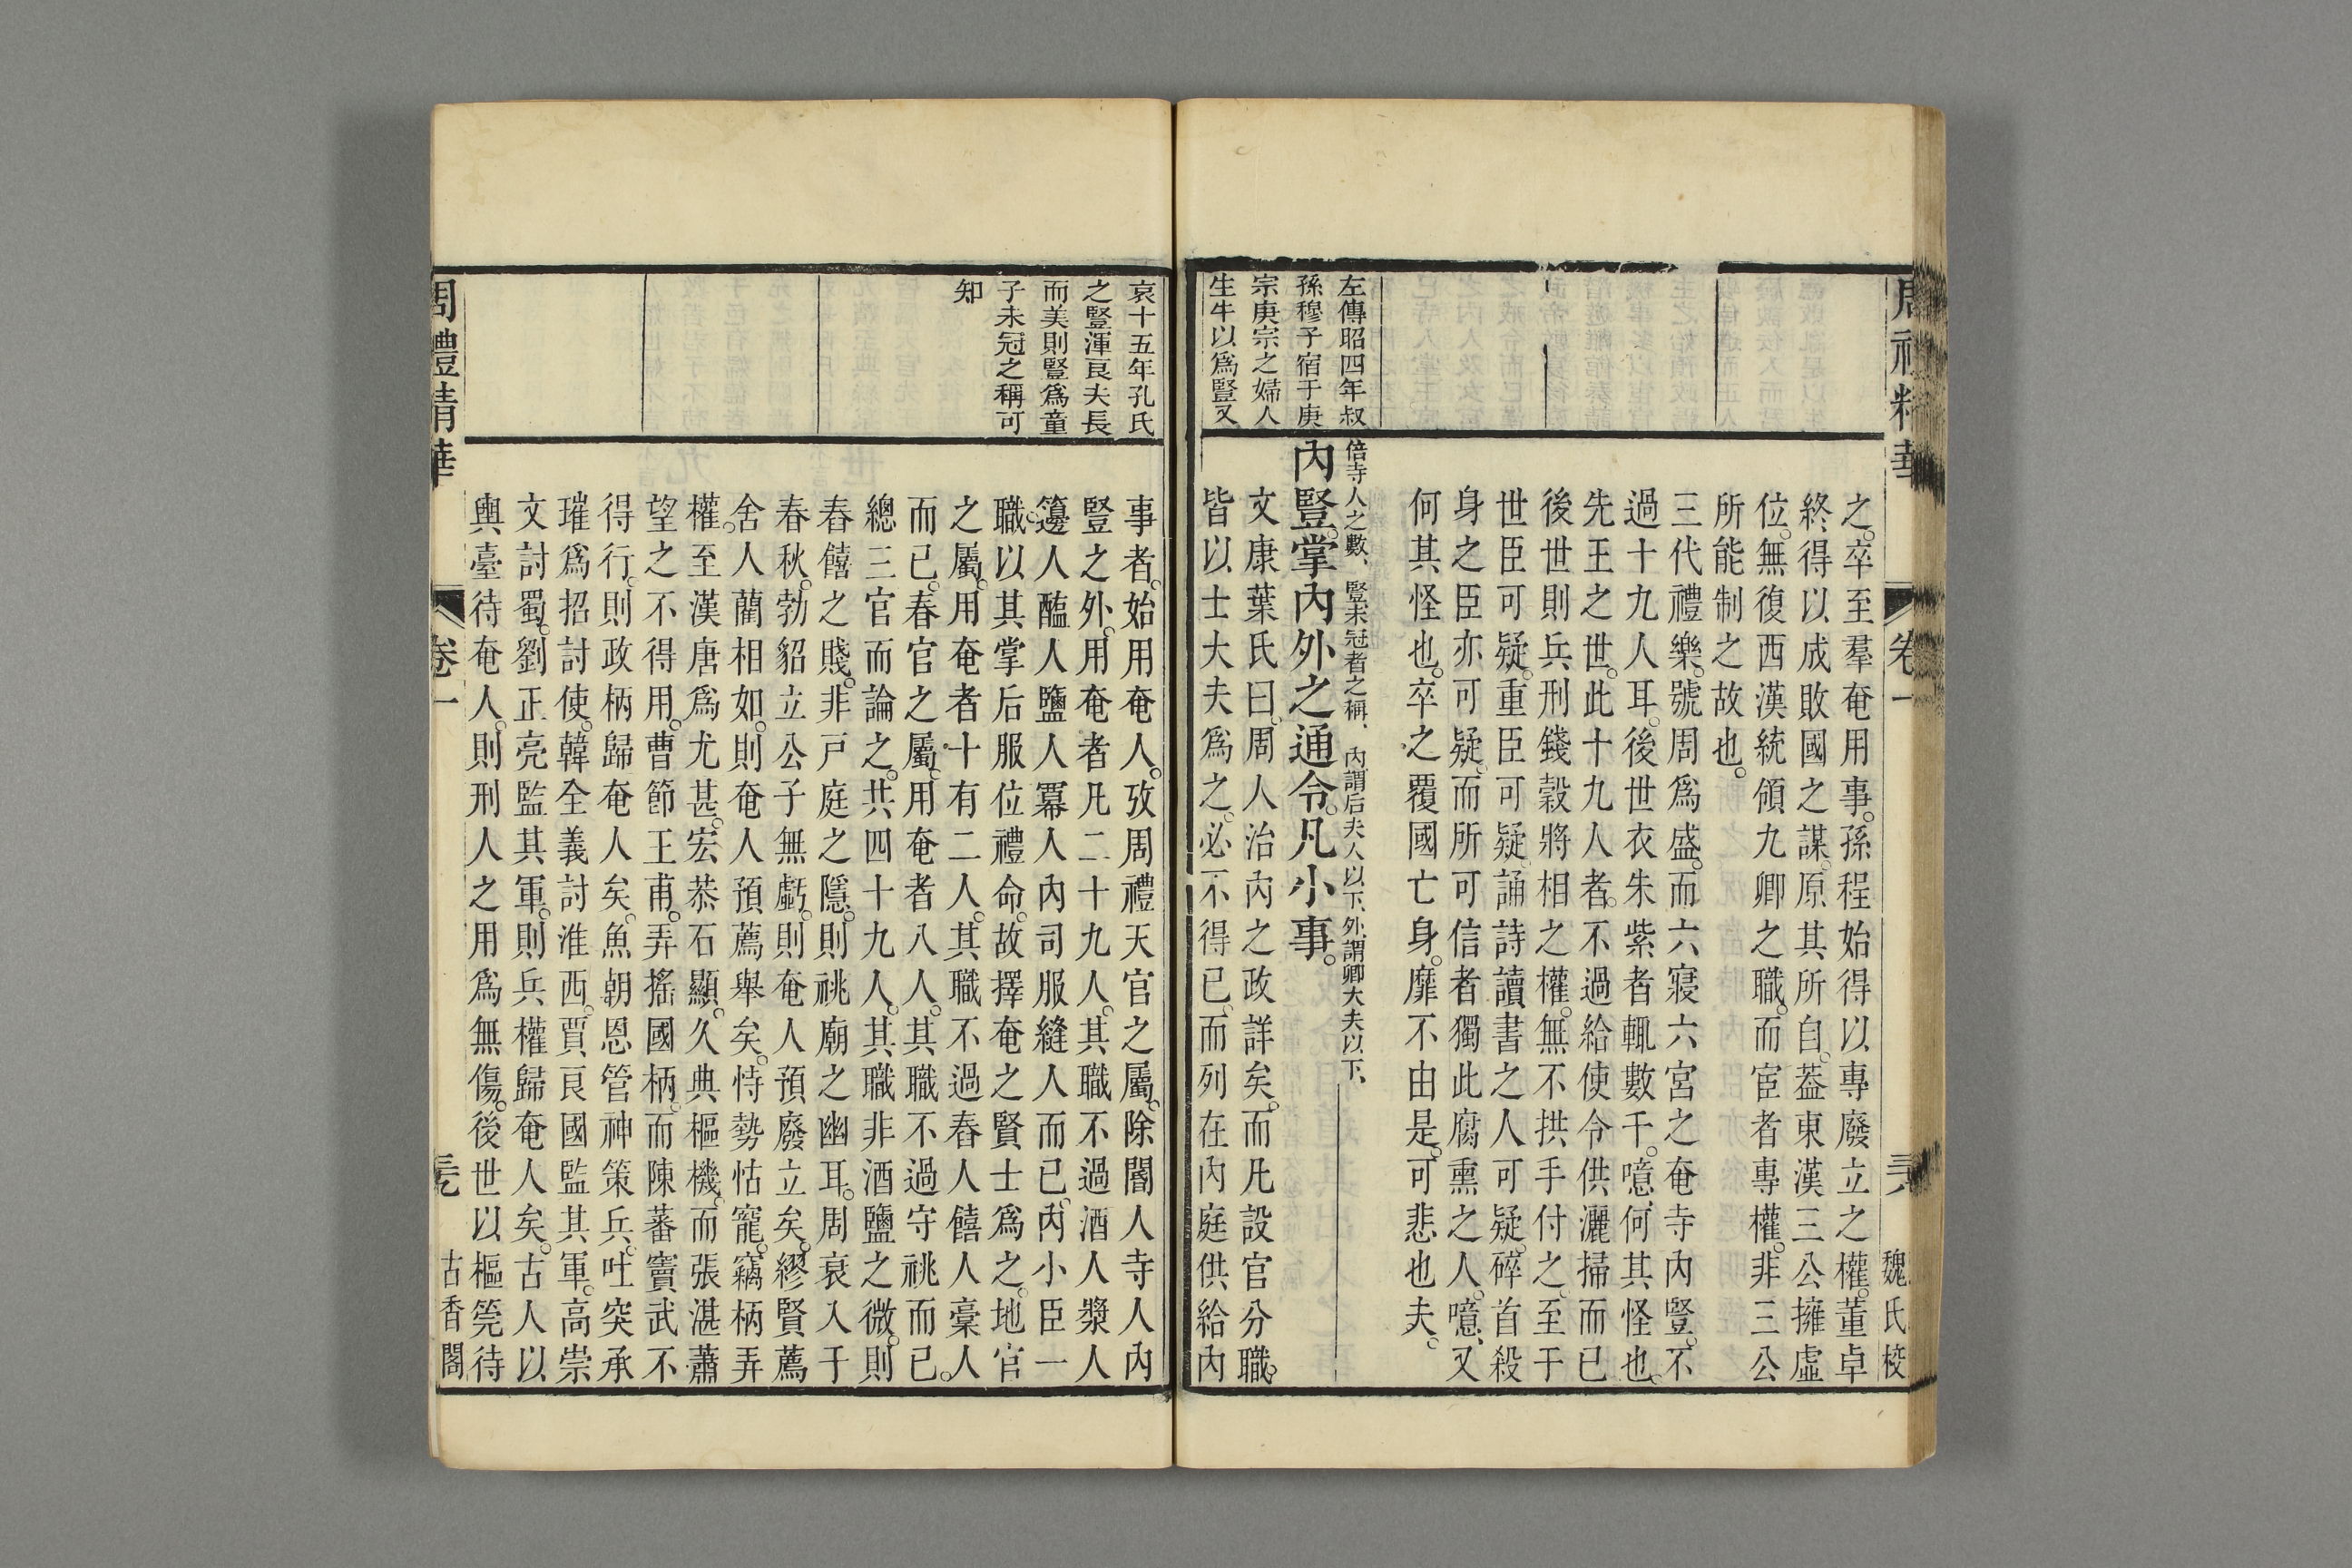 魏氏校
之。卒至羣奄用事。孫程始得以專廢立之權。董卓
終得以成敗國之謀。原其所自。葢東漢三公擁虛
位。無復西漢統領九卿之職。而宦者專權。非三公
所能制之故也。
三代禮樂。號周爲盛。而六寢六宮之奄寺內豎。不
過十九人耳。後世衣朱紫者輒數千。噫。何其怪也。
先王之世。此十九人者。不過給使令供灑掃而已
後世則兵刑錢穀將相之權。無不拱手付之。至于
世臣可疑。重臣可疑。誦詩讀書之人可疑。碎首殺
身之臣亦可疑。而所可信者獨此腐熏之人。噫、又
何其怪也。卒之覆國亡身。靡不由是。可悲也夫。
左傳昭四年叔
孫穆子宿于庚
宗庚宗之婦人
生牛以爲豎又
倍寺人之數、豎未冠者之稱、內謂后夫人以下、外謂卿大夫以下、
內豎。掌內外之通令。凡小事。
文康葉氏曰。周人治內之政詳矣。而凡設官分職。
皆以士大夫爲之。必不得已。而列在內庭供給內
哀十五年孔氏
之豎渾良夫長
而美則豎爲童
子未冠之稱可
知
事者。始用奄人。攷周禮天官之屬。除閽人寺人內
豎之外。用奄者凡二十九人。其職不過酒人漿人
籩人醢人鹽人冪人內司服縫人而已。內小臣一
職。以其掌后服位禮命。故擇奄之賢士爲之。地官
之屬。用奄者十有二人。其職不過舂人饎人稾人
而已。春官之屬。用奄者八人。其職不過守祧而已。
總三官而論之。共四十九人。其職非酒鹽之微。則
舂饎之賤。非戸庭之隱。則祧廟之幽耳。周衰入于
春秋。勃貂立公子無虧。則奄人預廢立矣。繆賢薦
舍人藺相如。則奄人預薦舉矣。恃勢怙寵。竊柄弄
權。至漢唐爲尤甚。宏恭石顯。久典樞機。而張湛蕭
望之不得用。曹節王甫。弄搖國柄。而陳蕃竇武不
得行。則政柄歸奄人矣。魚朝恩管神策兵。吐突承
璀爲招討使。韓全義討淮西。賈良國監其軍。高崇
文討蜀。劉正亮監其軍。則兵權歸奄人矣。古人以
輿臺待奄人。則刑人之用爲無傷。後世以樞筦待
周禮精華　卷一　古香閣